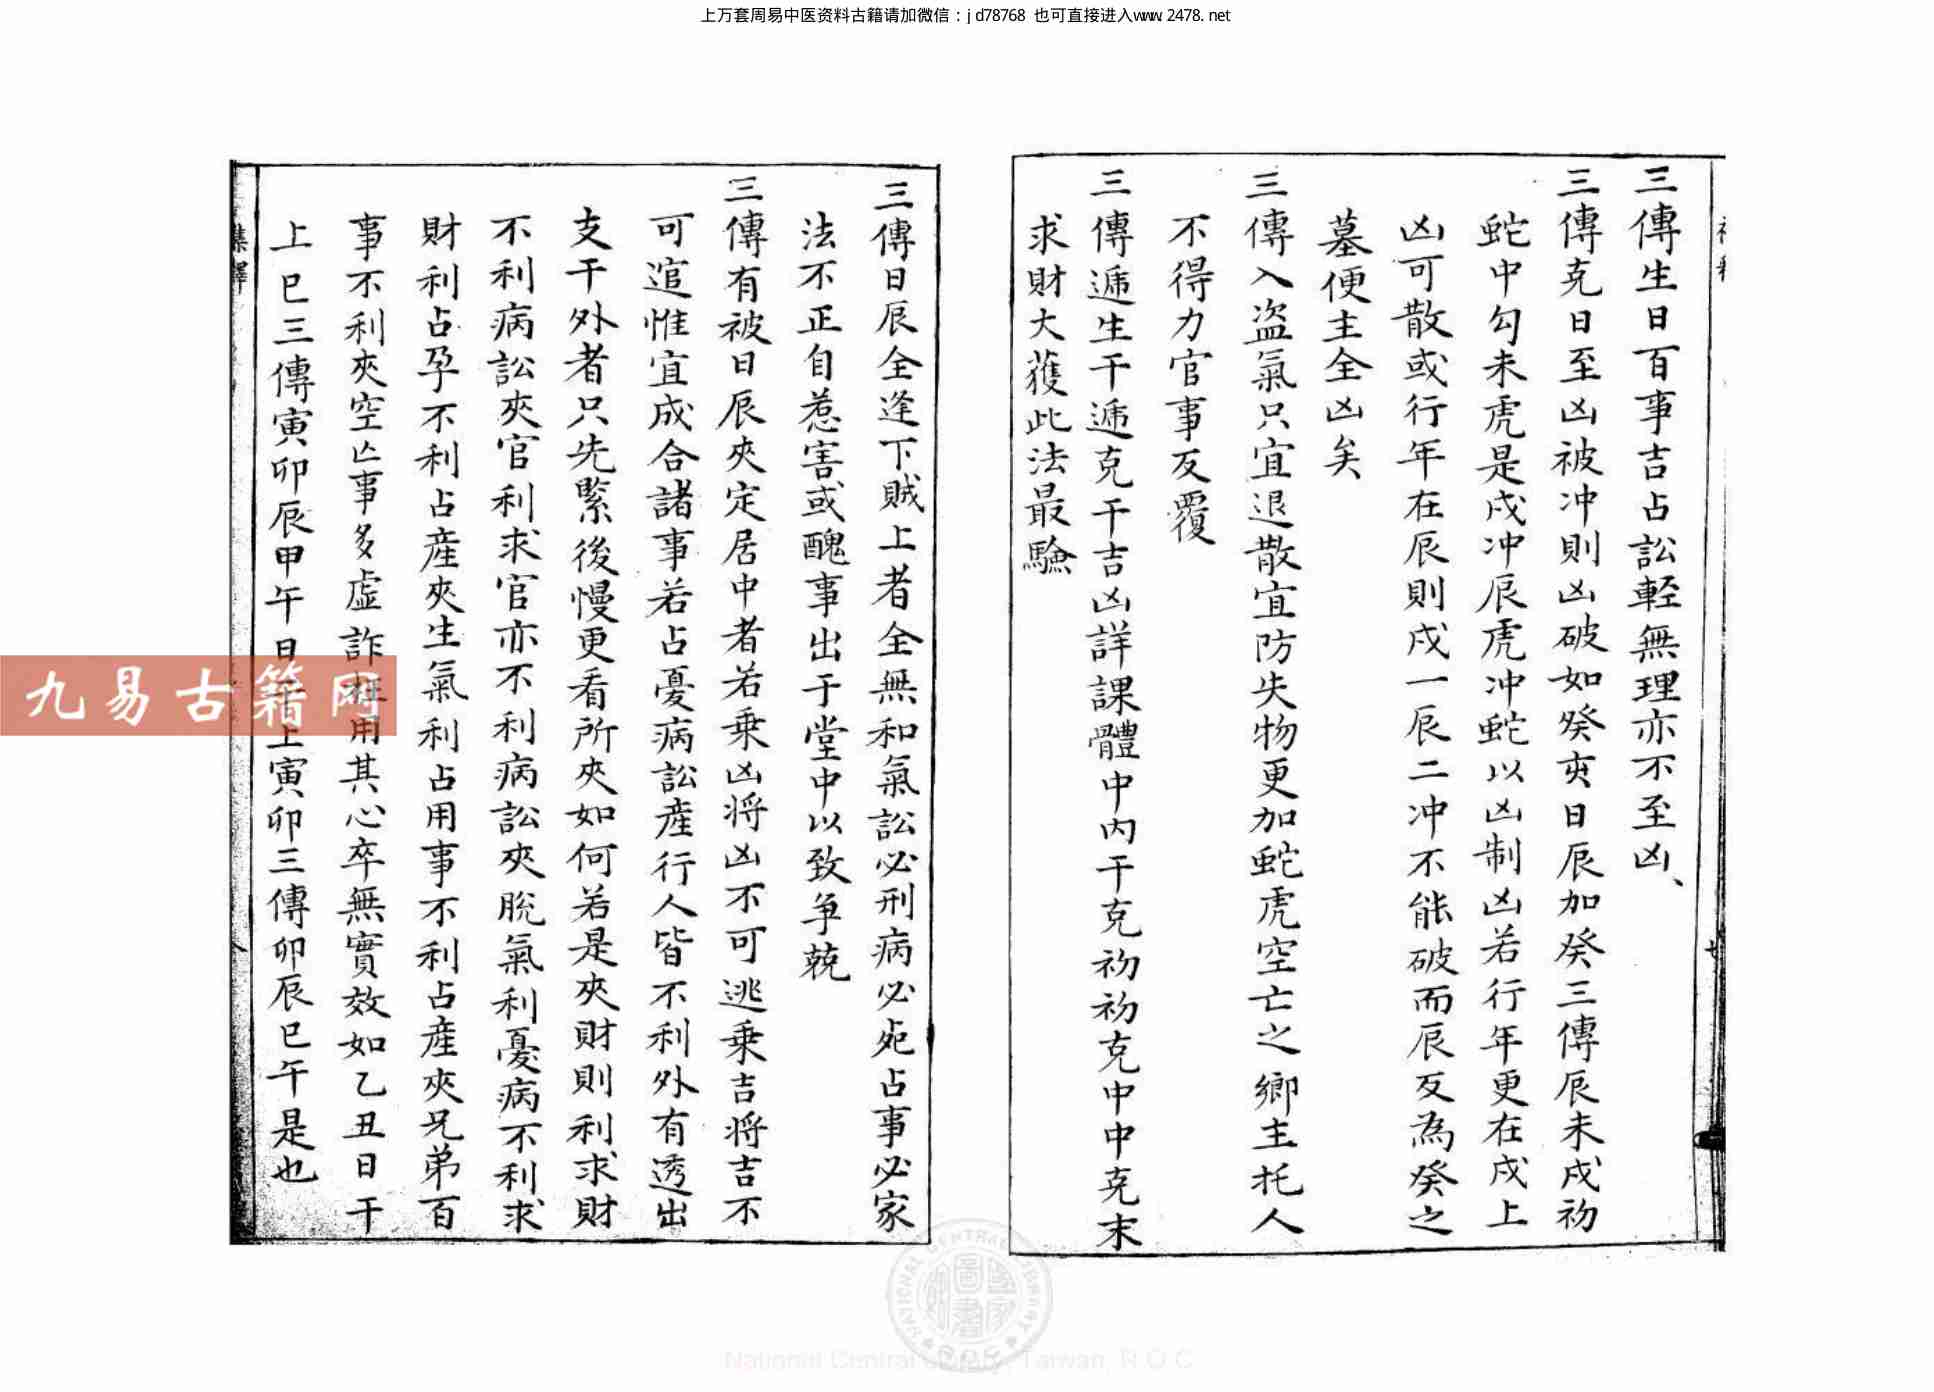 上万套周易中医资料古籍请加微信：jd78768 也可直接进入www.2478.net
三傳生日百事吉占訟輕無理亦不至凶、
三傳克日至凶被冲則凶破如癸亥日辰加癸三傳辰未戌初
蛇中勾末虎是戌冲辰虎冲蛇以凶制凶若行年更在戌上
凶可散或行年在辰則戌一辰二冲不能破而辰反為癸之
墓便主全凶矣
三傳入盗氣只宜退散宜防失物更加蛇虎空亡之鄉主托人
不得力官事反覆
三傳遞生干遞克干吉凶詳課體中内干克初初克中中克末
求財大獲此法最驗
三傳日辰全逢下賊上者全無和氣訟必刑病必死占事必家
法不正自惹害或醜事出于堂中以致争競
三傳有被日辰夾定居中者若乗凶将凶不可逃乗吉将吉不
可追惟宜成合諸事若占憂病訟産行人皆不利外有透出
支干外者只先緊後慢更看所夾如何若是夾財則利求財
不利病訟夾官利求官亦不利病訟夾脱氣利憂病不利求
財利占孕不利占産夾生氣利占用事不利占産夾兄弟百
事不利夾空亡事多虚詐枉用其心卒無實效如乙丑日干
上巳三傳寅卯辰甲午日干上寅卯三傳卯辰巳午是也
集釋
九易古籍网
NATIONAL CENTRAL LIBRARY
國家圖書館
National Central Library, Taiwan, R.O.C